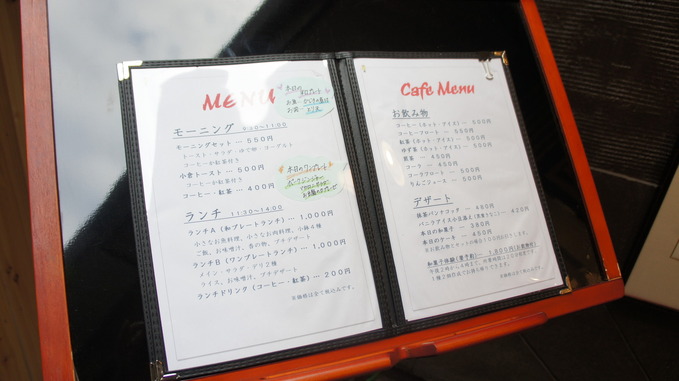 MENU
モーニング 8:30~11:00
モーニングセット ― 550円
トースト・サラダ・ゆで卵・ヨーグルト
コーヒーか紅茶付き
小倉トースト ― 500円
コーヒーか紅茶付き
コーヒー・紅茶 ― 400円
本日のワンプレート
ランチ 11:30~14:00
ランチA(和プレートランチ)… 1,000円
小さなお魚料理、小さなお肉料理、小鉢4種
ご飯、お味噌汁、香の物、プチデザート
ランチB(ワンプレートランチ)… 1,000円
メイン・サラダ・デリ2種
ライス、お味噌汁、プチデザート
ランチドリンク(コーヒー・紅茶)… 200円
※価格は全て税込みです。
Cafe Menu
お飲み物
コーヒー(ホット・アイス)― 500円
コーヒーフロート ― 550円
紅茶(ホット・アイス)― 500円
ゆず茶(ホット・アイス)― 500円
煎茶 ― 450円
コーラ ― 450円
コーラフロート ― 500円
りんごジュース ― 500円
デザート
抹茶パンナコッタ ― 480円
バニラアイス小豆添え
420円
本日の和菓子 ― 380円
本日のケーキ ― 450円
※お飲み物とセットの場合100円引きとなります。
1,800円
※価格は全て税込みです。